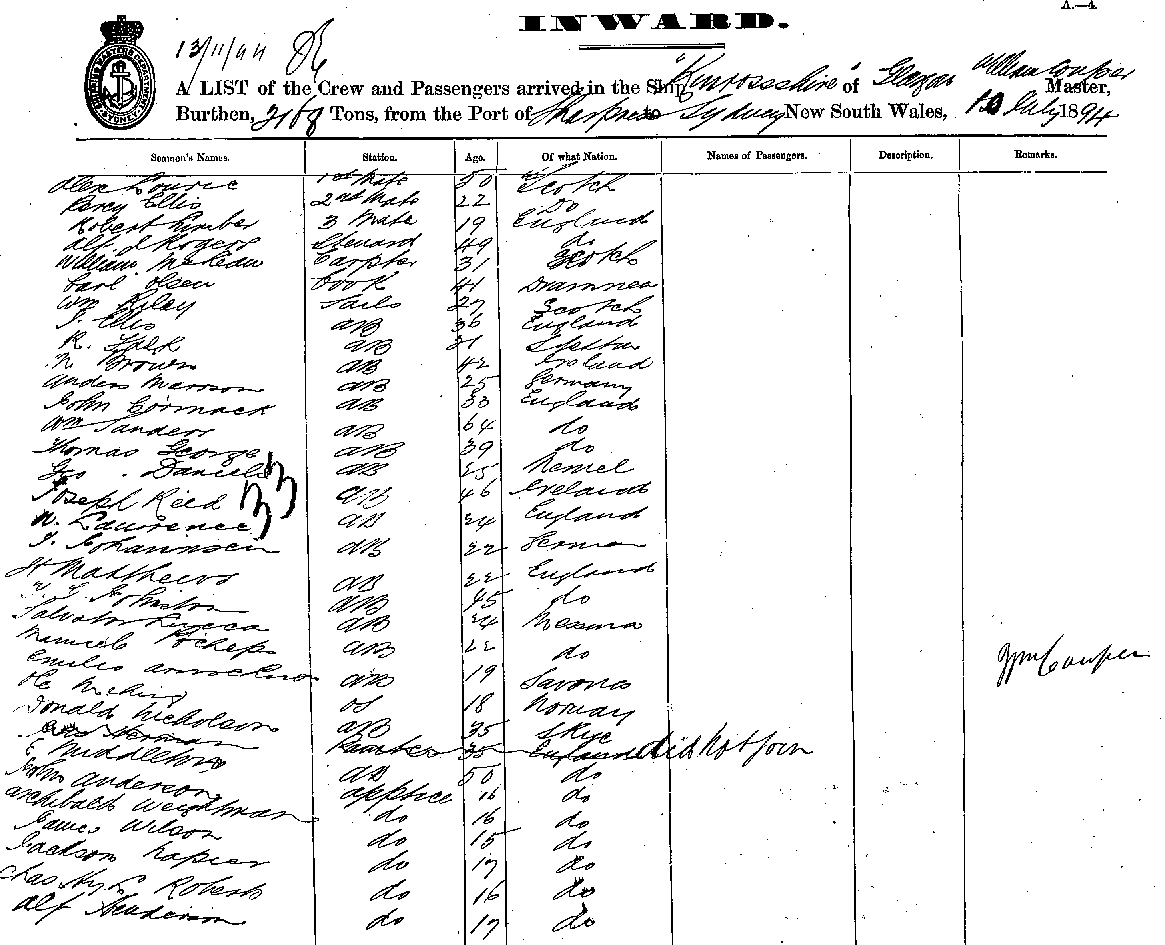 A.—4.
INWARD.
13/11/94
A LIST of the Crew and Passengers arrived in the Ship "Kinrossshire" of Glasgow William Couper Master,
Burthen, 2168 Tons, from the Port of to Sydney New South Wales, July 1894
Seamen's Names. Station. Age. Of what Nation. Names of Passengers. Description. Remarks.
Alex Lowrie 1st Mate 50 Scotch
Percy Ellis 2nd Mate 22 Do
Robert 3 Mate 19 England
Alf. J Rogers Steward 49 do
William McKeau Carpter 31 Scotch
Carl Olsen Cook 41
Wm Riley Sails 27 Scotch
J. Ellis AB 36 England
R. AB
N Brown AB 42 Ireland
Anders AB 25 Germany
John Cormack AB 33 England
Wm Sanders AB 64 do
Thomas George AB 39 do
Geo. Daniels AB 25 Memel
Joseph Reid AB 46 Ireland
W. Lawrence AB 24 England
J. Johannsen AB 22 German
H Matthews AB 22 England
Johnston AB 45 do
Salvator AB 24 Messina
AB 22 do
Emilio AB 19 Savona
OS 18 Norway
Donald Nicholson AB 35 Skye
Herman 35 England did not join
E. Middleton AB 50 do
John Anderson apptice 16 do
Archibald Weightman do 16 do
James Wilson do 15 do
Jackson Napier do 17 do
Chas Hy Roberts do 16 do
Alf Henderson do 17 do
Wm Couper